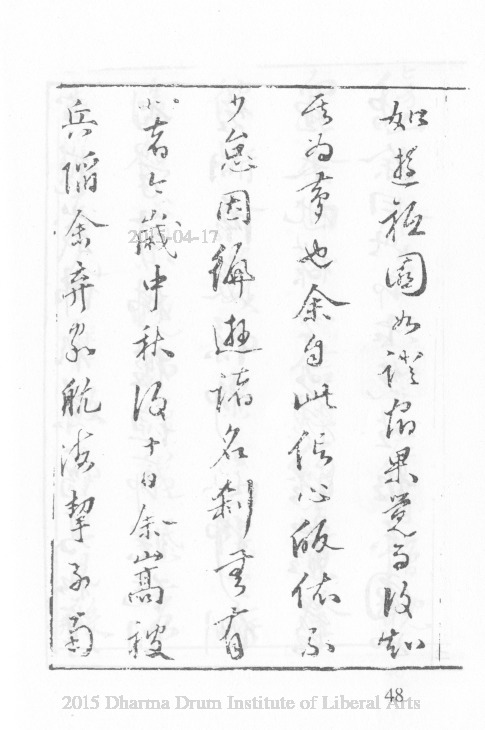 如遊祇園如證果覺而後知
其為夢也余自此信心皈依不
少怠因徧遊諸名剎有
者今歲中秋後十日余嵩被
兵陷余棄家航海挈子菊
2015-04-17
48
2015 Dharma Drum Institute of Liberal Arts